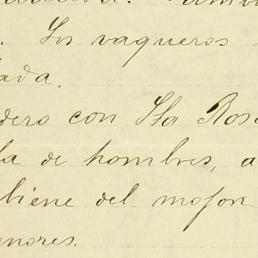 . Los vaqueros
ada.
dero con Sta Ros
la de hombres, a
biene del mojon
enores.